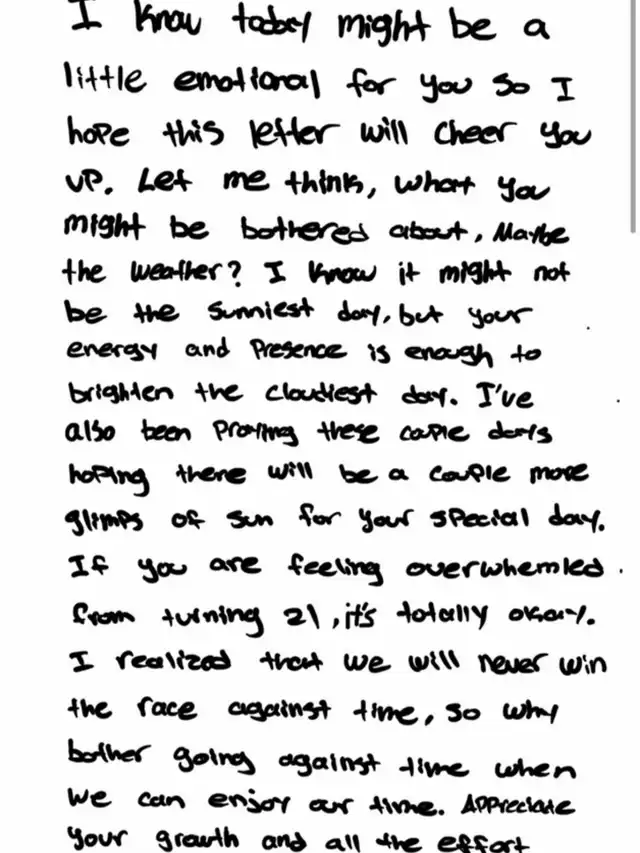 I know today might be a
little emotional for you so I
hope this letter will cheer you
up. Let me think, what you
might be bothered about, Maybe
the weather? I know it might not
be the sunniest day, but your
energy and presence is enough to
brighten the cloudiest day. I've
also been praying these couple days
hoping there will be a couple more
glimps of sun for your special day.
If you are feeling overwhemled
from turning 21, it's totally okay.
I realized that we will never win
the race against time, so why
bother going against time when
we can enjoy our time. Appreciate
your growth and all the effort